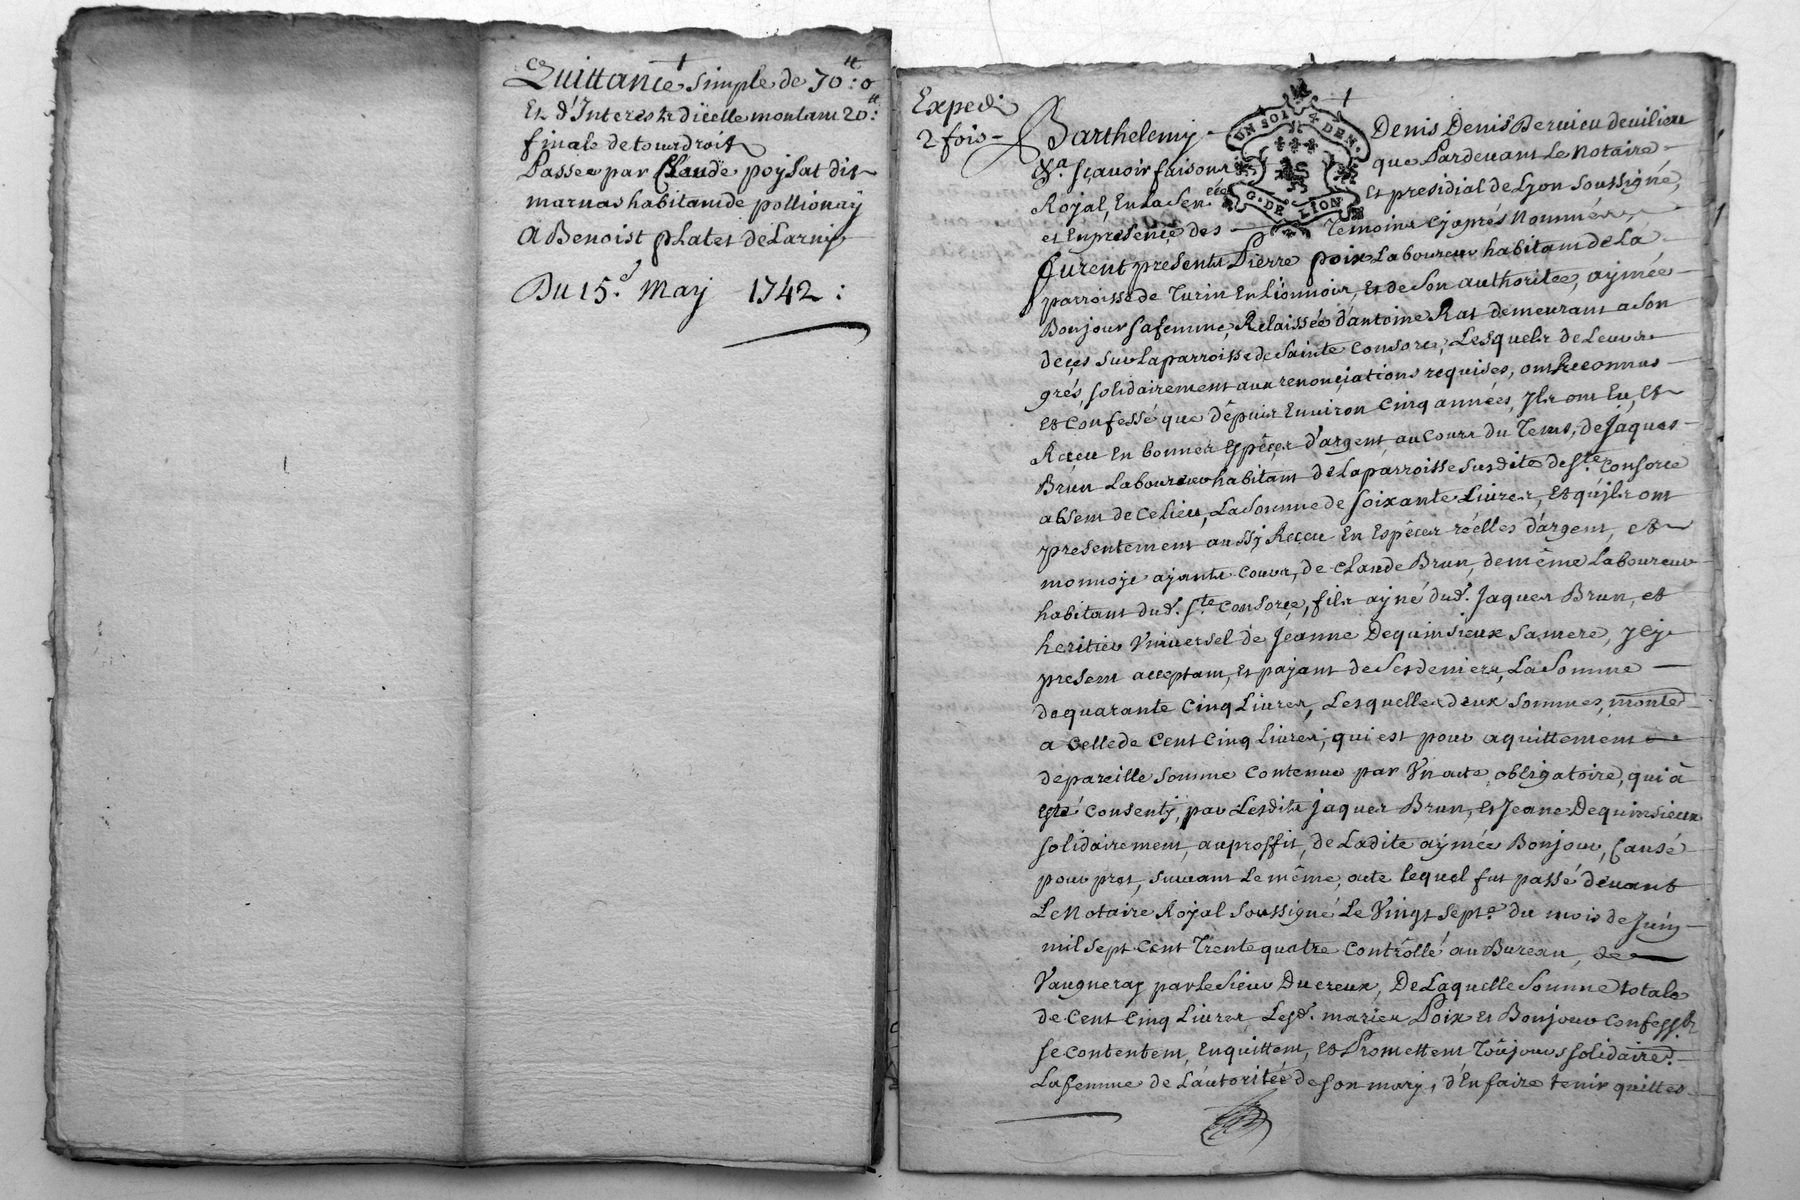 Quittance simple de 70:tt:0
Et d'Interestz dicelle montant 20:tt
finale de tour droit
Passée par Claude poysat dit
marnas habitant de pollionay
A Benoist plates de Larny
Du 15.e May 1742:
Exped.
2 fois
Barthelemy Denis Denis Beruieu deuilieu
&.a sçavoir faisons que Pardeuant Le Notaire
Royal, En La Sen.ée et presidial de Lyon soussigné,
et En presence des Temoins Cyaprés Nommés,
furent presents Pierre poix Laboureur habitant de La
parroisse de Turin En Lionnois, et de son authoritée, aymée
Bonjour sa femme, Relaissée d'antoine Rat demeurant a son
deçes sur La parroisse de Sainte Consorce, Lesquels de Leur
grés, solidairement aux renonçiations requises, ont Reconnus
et Confessé que dépuis Environ Cinq années, Jls ont Eu, et
Reçeu En bonnes Espéçes d'argent au cours du Tems, de Jaques
Brun Laboureur habitant de La parroisse susdite de S.te Consorce
absent de ce lieu, La Somme de soixante Liures, et qu'jls ont
presentement aussy Reçeu En Espéces réelles d'argent, et
monnoye ayants cours, de Claude Brun, de même Laboureur
habitant dud. S.te Consorçe, fils ayné dud. Jaques Brun, et
heritier Vniuersel de Jeanne Dequinsieux sa mere, Jcy
present acceptant, et payant de Ses deniers, La Somme
de quarante Cinq Liures, Lesquelles deux Sommes, monte
a Celle de Cent Cinq Liures, qui est pour aquittement
de pareille Somme Contenue par Vn acte, obligatoire, qui à
Esté Consenty, par Lesdits Jaques Brun, et Jeane Dequinsieux
solidairement, au proffit, de Ladite aymée Bonjour, Causé
pour pret, suiuant Le même, acte lequel fut passé deuant
Le Notaire Royal Soussigné Le Vingt sept.e du mois de Juin
mil sept cent Trente quatre Contrôllé au Bureau, de
Vaugneray par le Sieur Ducreux, De Laquelle Somme totale
de Cent Cinq Liures, Lesd. mariés Poix et Bonjour Confess.t
se Contentent, En quittent, et Promettent Toûjours solidaire.t
La femme de L'autoritée de son mary, d'En faire tenir quittes
UN SOL 4 DEN.
G. DE LION